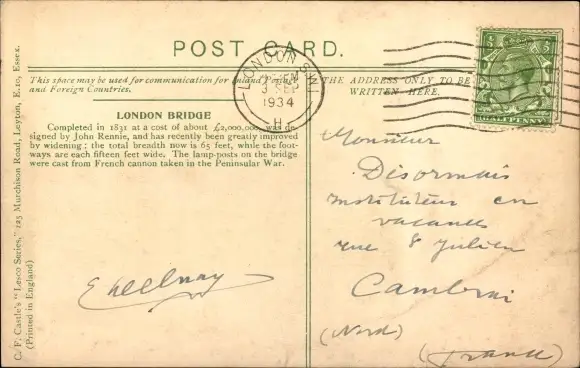 POST CARD.
This space may be used for communication for Inland Postage
and Foreign Countries.
THE ADDRESS ONLY TO BE
WRITTEN HERE.
LONDON S.W.1
3 SEP
1934
H
HALFPENNY
LONDON BRIDGE
Completed in 1831 at a cost of about £2,000,000, was de-
signed by John Rennie, and has recently been greatly improved
by widening; the total breadth now is 65 feet, while the foot-
ways are each fifteen feet wide. The lamp-posts on the bridge
were cast from French cannon taken in the Peninsular War.
C. F. Castle's "Lesco Series," 125 Murchison Road, Leyton, E.10, Essex.
(Printed in England)
Monsieur
Désormais
Instituteur en
vacances
rue S Julien
Cambrai
(Nord)
(France)